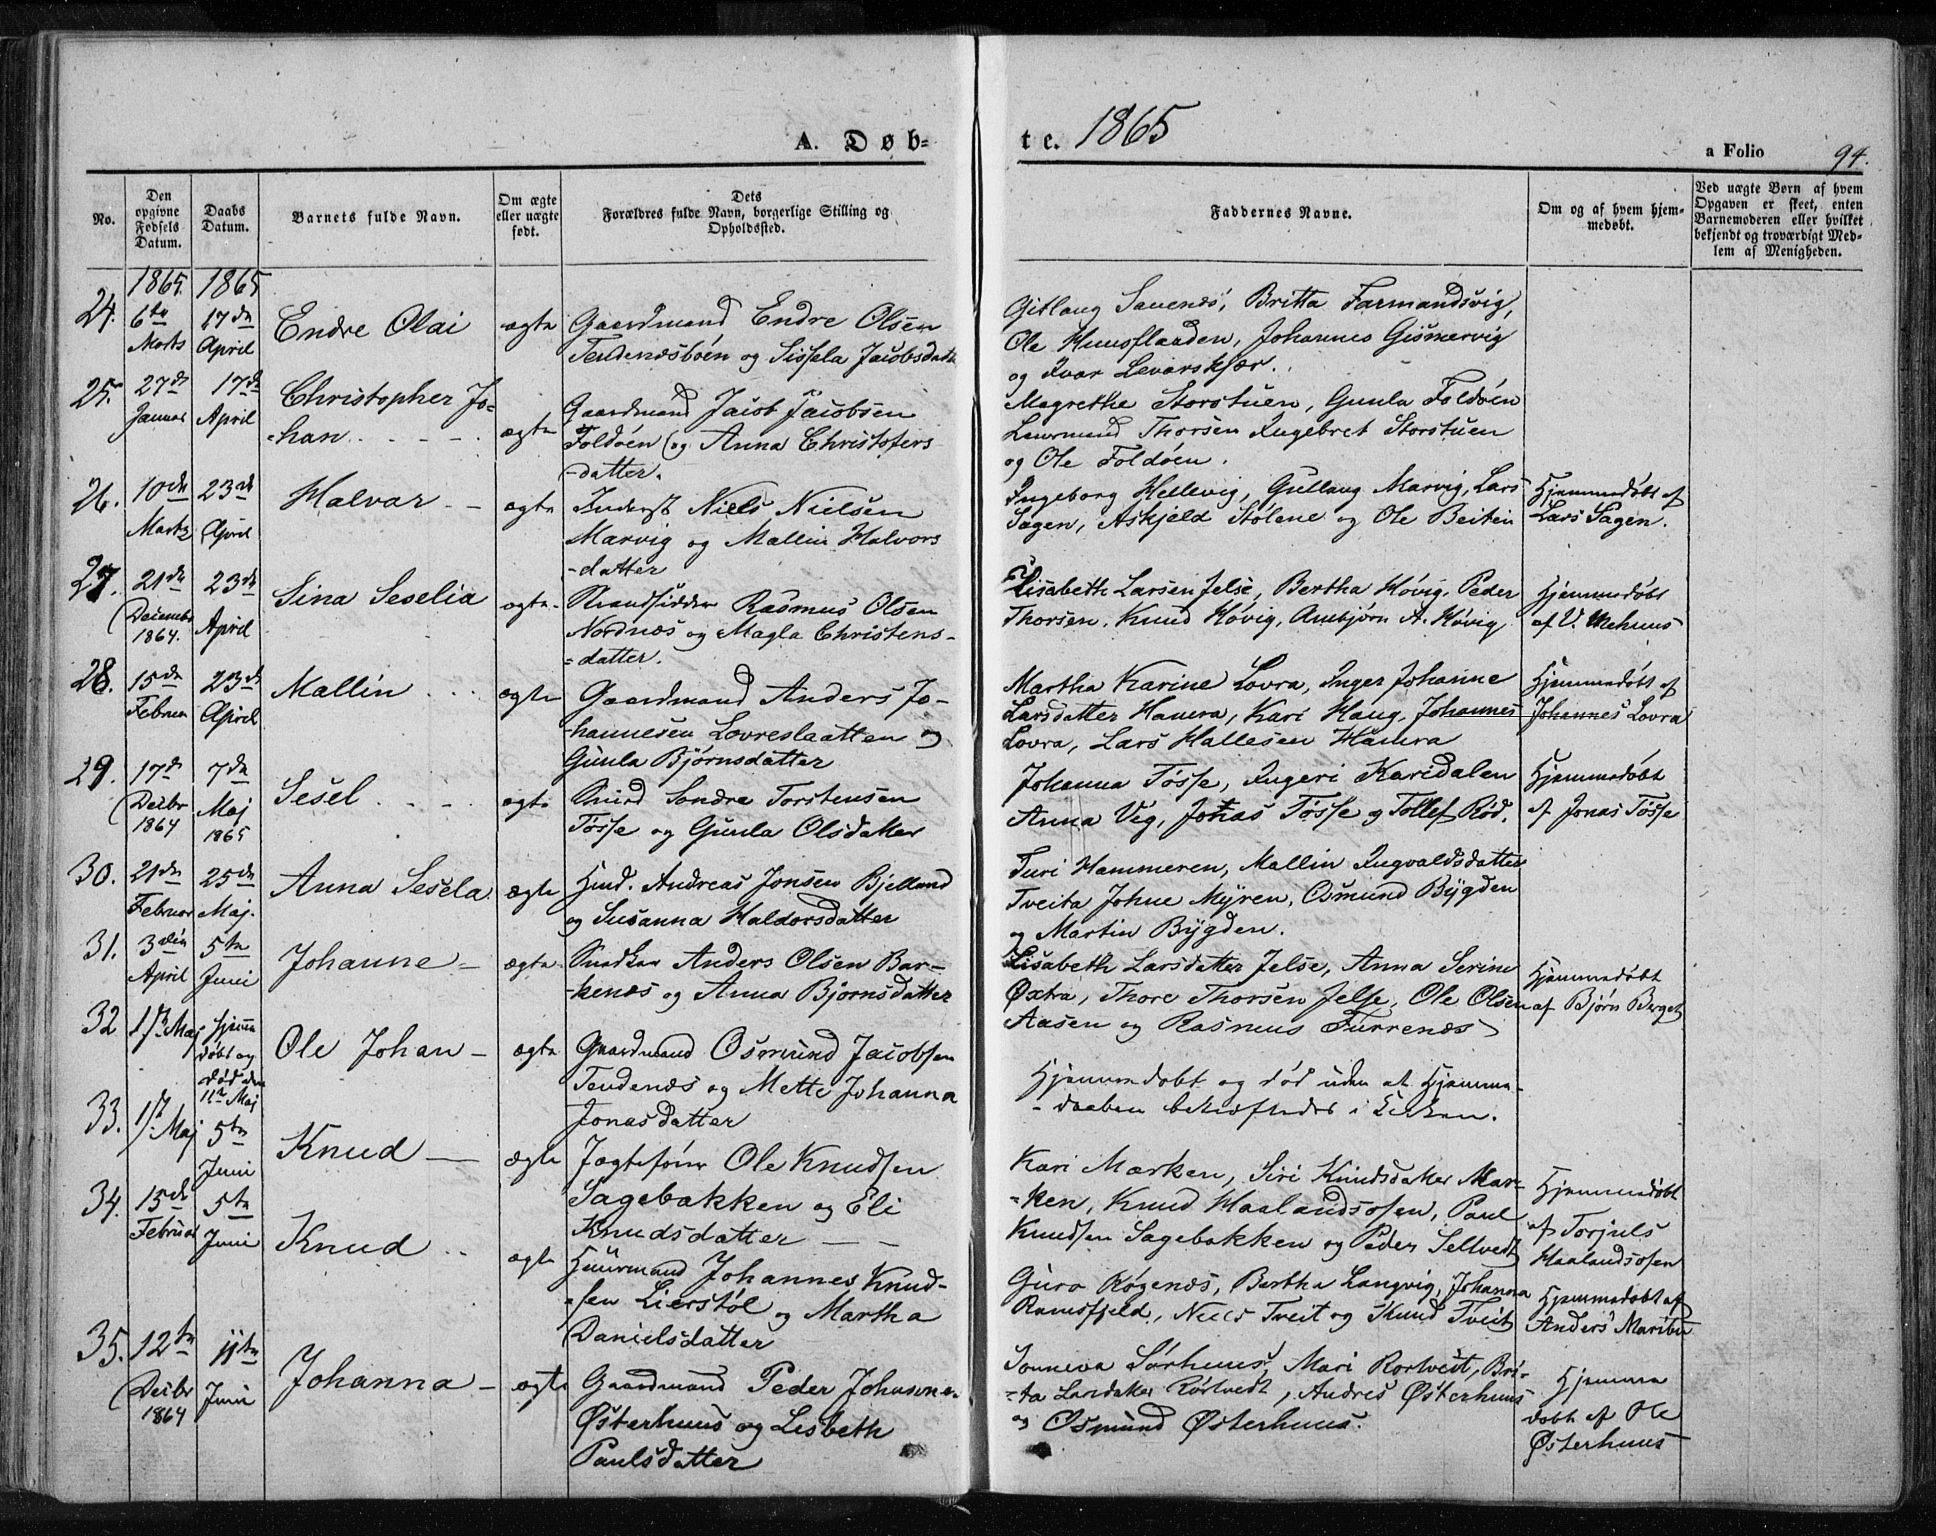 A. Døb-
te. 1865
a Folio 94.
No.
Den opgivne Fødsels Datum.
Daabs Datum.
Barnets fulde Navn.
Om ægte eller uægte født.
Dets Forældres fulde Navn, borgerlige Stilling og Opholdssted.
Faddernes Navne.
Om og af hvem hjemmedøbt.
Ved uægte Børn af hvem Opgaven er skeet, enten Barnemoderen eller hvilket bekjendt og troværdigt Medlem af Menigheden.
1865. 1865
24. 6te Marts 17de April
Endre Olai
ægte
Gaardmand Endre Olsen
Tendenæsbøen og Sissela Jacobsdatter
Gitlaug Sauenæs, Britta Farmandsvig,
Ole Huusflaaden, Johannes Gismervig
og Ivar Levarskjær.
25. 27de Januar 17de April
Christopher Jo-
-han
ægte
Gaardmand Jacob Jacobsen
Foldøen og Anna Christofers
-datter.
Magrethe Storstuen, Gunla Foldøen
Thorsen Ingebret Storstuen
og Ole Foldøen.
26. 10de Marts 23de April
Halvar
ægte
Inderst Niels Nielsen
Marvig og Mallin Halvors
-datter
Ingeborg Hellevig, Gullaug Marvig, Lars
Sagen, Askjeld Stølene og Ole Beitein
Hjemmedøbt af
Lars Sagen.
27. 21de Decembr 1864. 23de April
Sina Seselia
ægte
Strandsidder Rasmus Olsen
Nordnæs og Magla Christens-
-datter.
Lisabeth Larsen Jelse, Bertha Høvig, Peder
Thorsen, Knud Høvig, Ambjørn A. Høvig
Hjemmedøbt
af V. Mehuus
28. 15de Februar 23de April
Mallin
ægte
Gaardmand Anders Jo-
-hannesen Lovreslaatten og
Gunla Bjørnsdatter
Martha Karine Lovra, Inger Johanne
Larsdatter Hamra, Kari Haug, Johannes
Lovra, Lars Hallesen Hamra
Hjemmedøbt af
Johannes Lovra
29. 17de Decbr 1864 7de Maj 1865
Sesel
ægte
Smed Sondre Torstensen
Tøsse og Gunla Olsdatter
Johanna Tøsse, Ingeri Karidalen
Anna Veg, Jonas Tøsse og Tollef Rød.
Hjemmedøbt
af Jonas Tøsse
30. 21de Februar 25de Maj.
Anna Sesela
ægte
Huusmd. Andreas Jonsen Bjelland
og Susanna Haldorsdatter
Turi Hammeren, Mallin Ingvaldsdatter
Tveita Johne Myren, Osmund Bygden
og Martin Bygden.
31. 3die April 5te Juni
Johanne
ægte
Snedker Anders Olsen Bar-
-kenæs og Anna Bjørnsdatter
Lisabeth Larsdatter Jelse, Anna Serine
Øxtra, Thore Thorsen Jelse, Ole Olsen
Aasen og Rasmus Furrenæs
Hjemmedøbt
af Bjørn Berget
32 1ste Maj Hjemmedøbt og død den 11te Maj
Ole Johan
ægte
Gaardmand Osmund Jacobsen
Tendenæs og Mette Johanna
Jonasdatter
Hjemmedøbt og død uden at Hjemme-
-daaben bekræftedes i Kirken.
33. 1ste Maj 5te Juni
Knud
ægte
Jagtefører Ole Knudsen
Sagebakken og Eli
Knudsdatter
Kari Marken, Siri Knudsdatter Mar-
-ken, Knud Haalandsosen, Paul
Knudsen Sagebakken og Peder Selleveit
Hjemmedøbt
af Torjuls
Haalandsosen
34. 15de Februar 5te Juni
Knud
ægte
Huusmand Johannes Knud-
-sen Lierstøl og Martha
Danielsdatter
Guro Røgenæs, Bertha Langvig, Johanna
Ramsfjeld, Niels Tveit og Knud Tveit
Hjemmedøbt af
Anders Maribu
35. 12te Decbr 1864 11te Juni
Johanna
ægte
Gaardmand Peder Johnsen
Østerhuus og Lisbeth
Paulsdatter
Sonneva Sørhuus, Mari Rørtvedt, Bri-
-ta Larsdatter Rørtvedt, Andres Østerhuus
og Osmund Østerhuus.
Hjemme
døbt af Ole
Østerhuus